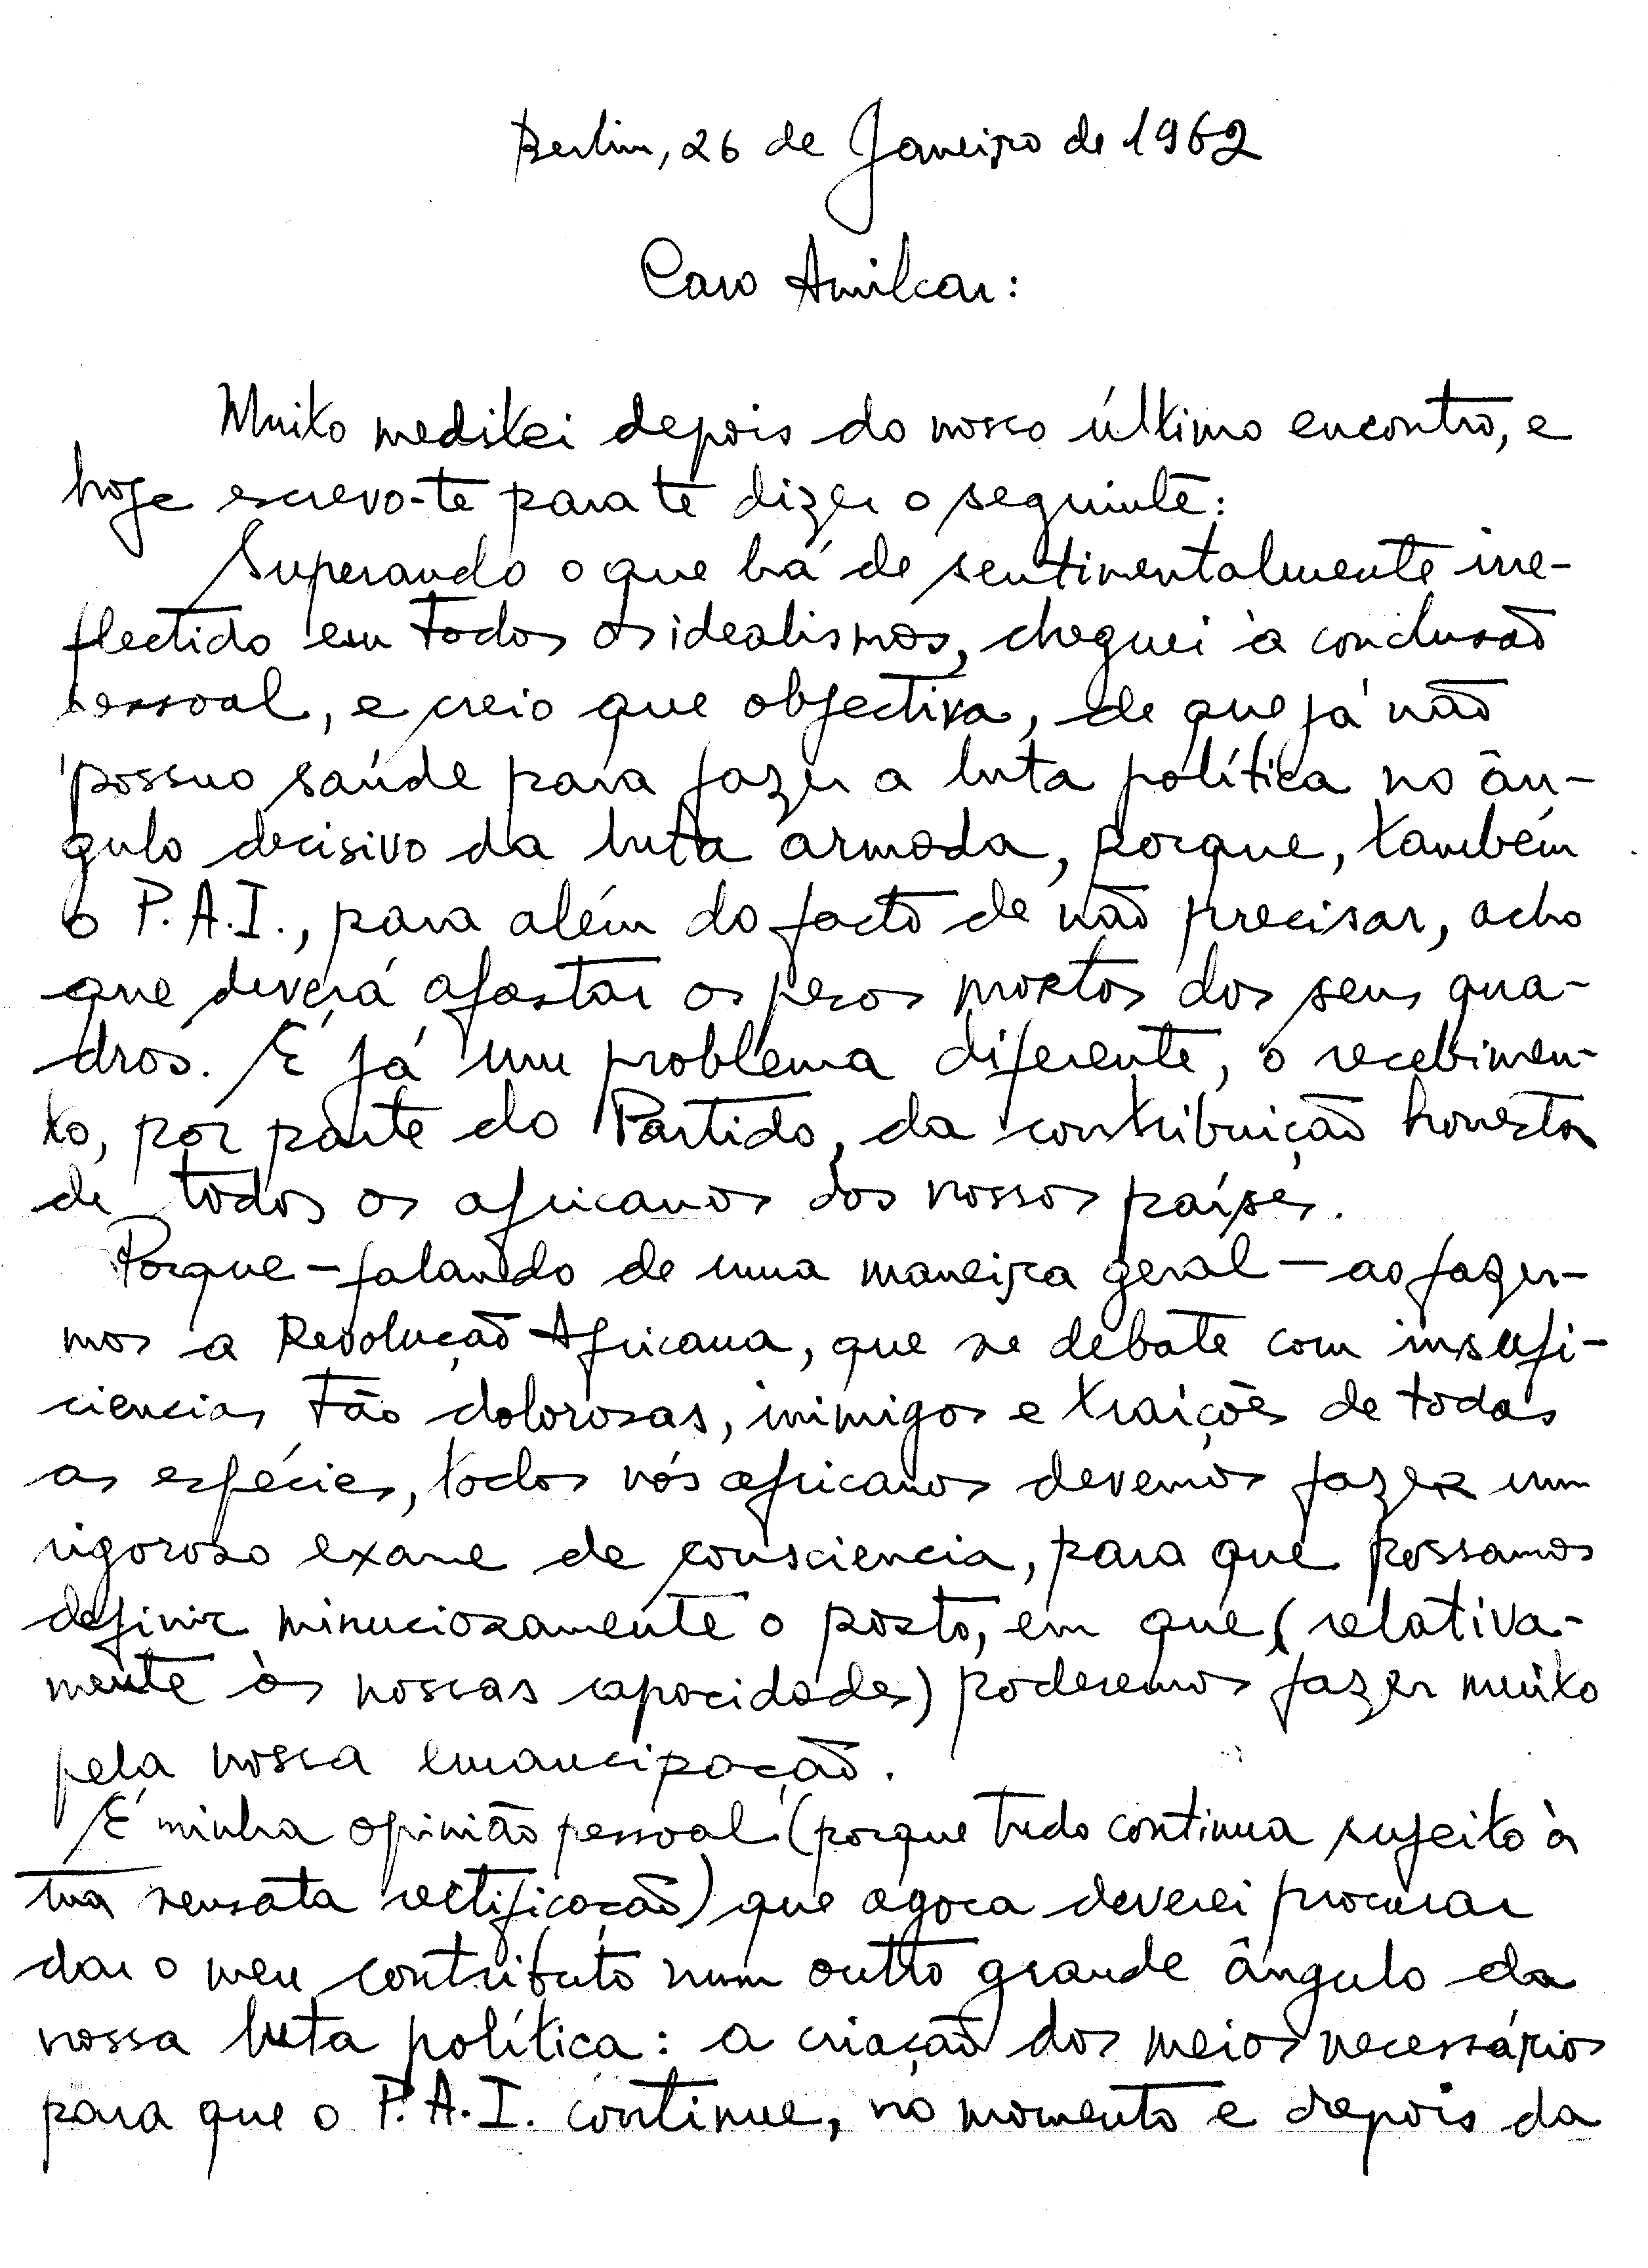 Berlim, 26 de Janeiro de 1962
Caro Amilcar:
Muito meditei depois do nosso último encontro, e
hoje escrevo-te para te dizer o seguinte:
Superando o que há de sentimentalmente irre-
flectido em todos os idealismos, cheguei à conclusão
pessoal, e creio que objectiva, de que já não
possuo saúde para fazer a luta política no ân-
gulo decisivo da luta armada, porque, também
o P.A.I., para além do facto de não precisar, acho
que deverá afastar os pesos mortos dos seus qua-
dros. É já um problema diferente, o recebimen-
to, por parte do Partido, da contribuição honesta
de todos os africanos dos nossos países.
Porque - falando de uma maneira geral - ao fazer-
mos a Revolução Africana, que se debate com insufi-
ciencias tão dolorosas, inimigos e traições de todas
as espécies, todos nós africanos devemos fazer um
rigoroso exame de consciencia, para que possamos
definir minuciosamente o posto, em que (relativa-
mente às nossas capacidades) poderemos fazer muito
pela nossa emancipação.
É minha opinião pessoal (porque tudo continua sujeito à
tua sensata rectificação) que agora deverei procurar
dar o meu contributo num outro grande ângulo da
nossa luta política: a criação dos meios necessários
para que o P.A.I. continue, no momento e depois da